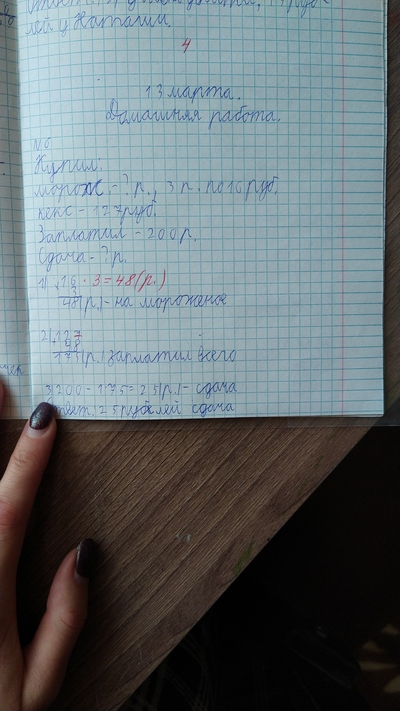 лей у Наташи.
4
13 марта.
Домашняя работа.
N6
Купил:
морож. - ? р., 3 п. по 16 руб.
кекс - 127 руб.
Заплатил - 200 р.
Сдача - ? р.
1) 16 · 3 = 48 (р.)
3
48 (р.) - на мороженое
2) 127
48
175 (р.) зарлатил всего
3) 200 - 175 = 25 (р.) - сдача
Ответ: 25 рублей сдача